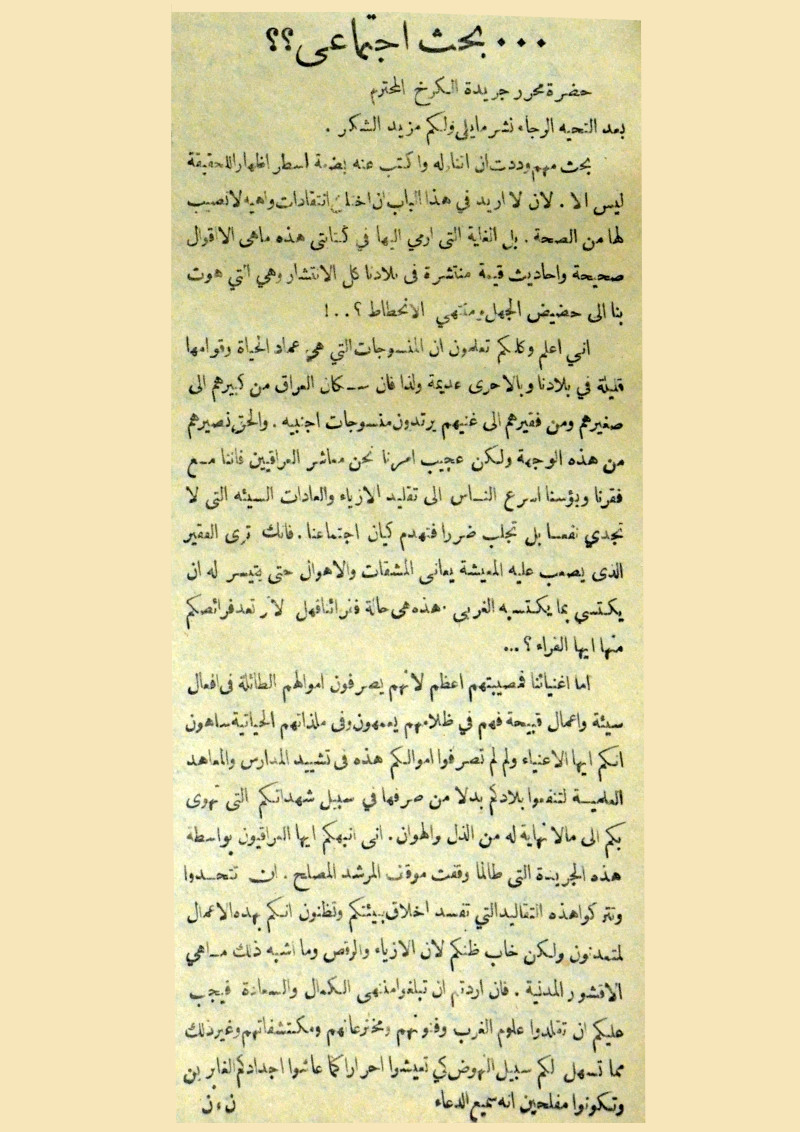 ... بحث اجتماعى ؟؟
حضرة محرر جريدة الكرخ المحترم
بعد التحيه الرجاء نشر مايلى ولكم مزيد الشكر .
بحث مهم وددت ان اتناوله واكتب عنه بضعة اسطر اظهارا للحقيقة
ليس الا . لان لا اريد في هذا الباب ان اختلق انتقادات واهيه لا نصيب
لها من الصحة . بل الغاية التى ارمي اليها في كتابتى هذه ماهى الا اقوال
صحيحة واحاديث قيمة منتشرة فى بلادنا كل الانتشار وهي التي هوت
بنا الى حضيض الجهل ومنتهي الانحطاط ؟ . . !
اني اعلم وكلكم تعلمون ان المنسوجات التي هي عماد الحياة وقوامها
قليلة في بلادنا وبالاحرى عديمة ولذا فان سكان العراق من كبيرهم الى
صغيرهم ومن فقيرهم الى غنيهم يرتدون منسوجات اجنبيه . والحق نصيرهم
من هذه الوجهة ولكن عجيب امرنا نحن معاشر العراقيين فاننا مع
فقرنا وبؤسنا اسرع الناس الى تقليد الازياء والعادات السيئه التى لا
تجدي نفعا بل تجلب ضررا فتهدم كيان اجتماعنا . فانك ترى الفقير
الذى يصعب عليه المعيشة يعانى المشقات والاهوال حتى يتيسر له ان
يكتسي بما يكتسبه الغربى . هذه هى حالة فقرائنا فهل لا ترتعد فرائصكم
منها ايها القراء ؟ ...
اما اغنيائنا فمصيبتهم اعظم لانهم يصرفون اموالهم الطائلة فى افعال
سيئة واعمال قبيحة فهم في ظلامهم يعمهون وفى ملذاتهم الحياتية ساهون
انكم ايها الاغنياء ولم لم تصرفوا اموالكم هذه فى تشييد المدارس والمعاهد
العلمية لتنفعوا بلادكم بدلا من صرفها في سبيل شهداتكم التى تهوى
بكم الى مالا نهاية له من الذل والهوان . انى انبهكم ايها العراقيون بواسطة
هذه الجريدة التى طالما وقفت موقف المرشد المصلح . ان تتحدوا
وتتركوا هذه التقاليد التي تفسد اخلاق بيئتكم وتظنون انكم بهده الاعمال
لمتمدنون ولكن خاب ظنكم لان الازياء والرقص وما اشبه ذلك ماهي
الاقشور المدنية . فان اردتم ان تبلغوا منتهى الكمال والسعادة فيجب
عليكم ان تقلدوا علوم الغرب وفنونهم ومخترعاتهم ومكتشفاتهم وغير ذلك
مما تسهل لكم سبيل النهوض كي تعيشوا احرارا كما عاشوا اجدادكم الغابرين
وتكونوا مفلحين انه سميع الدعاء ن ، ن